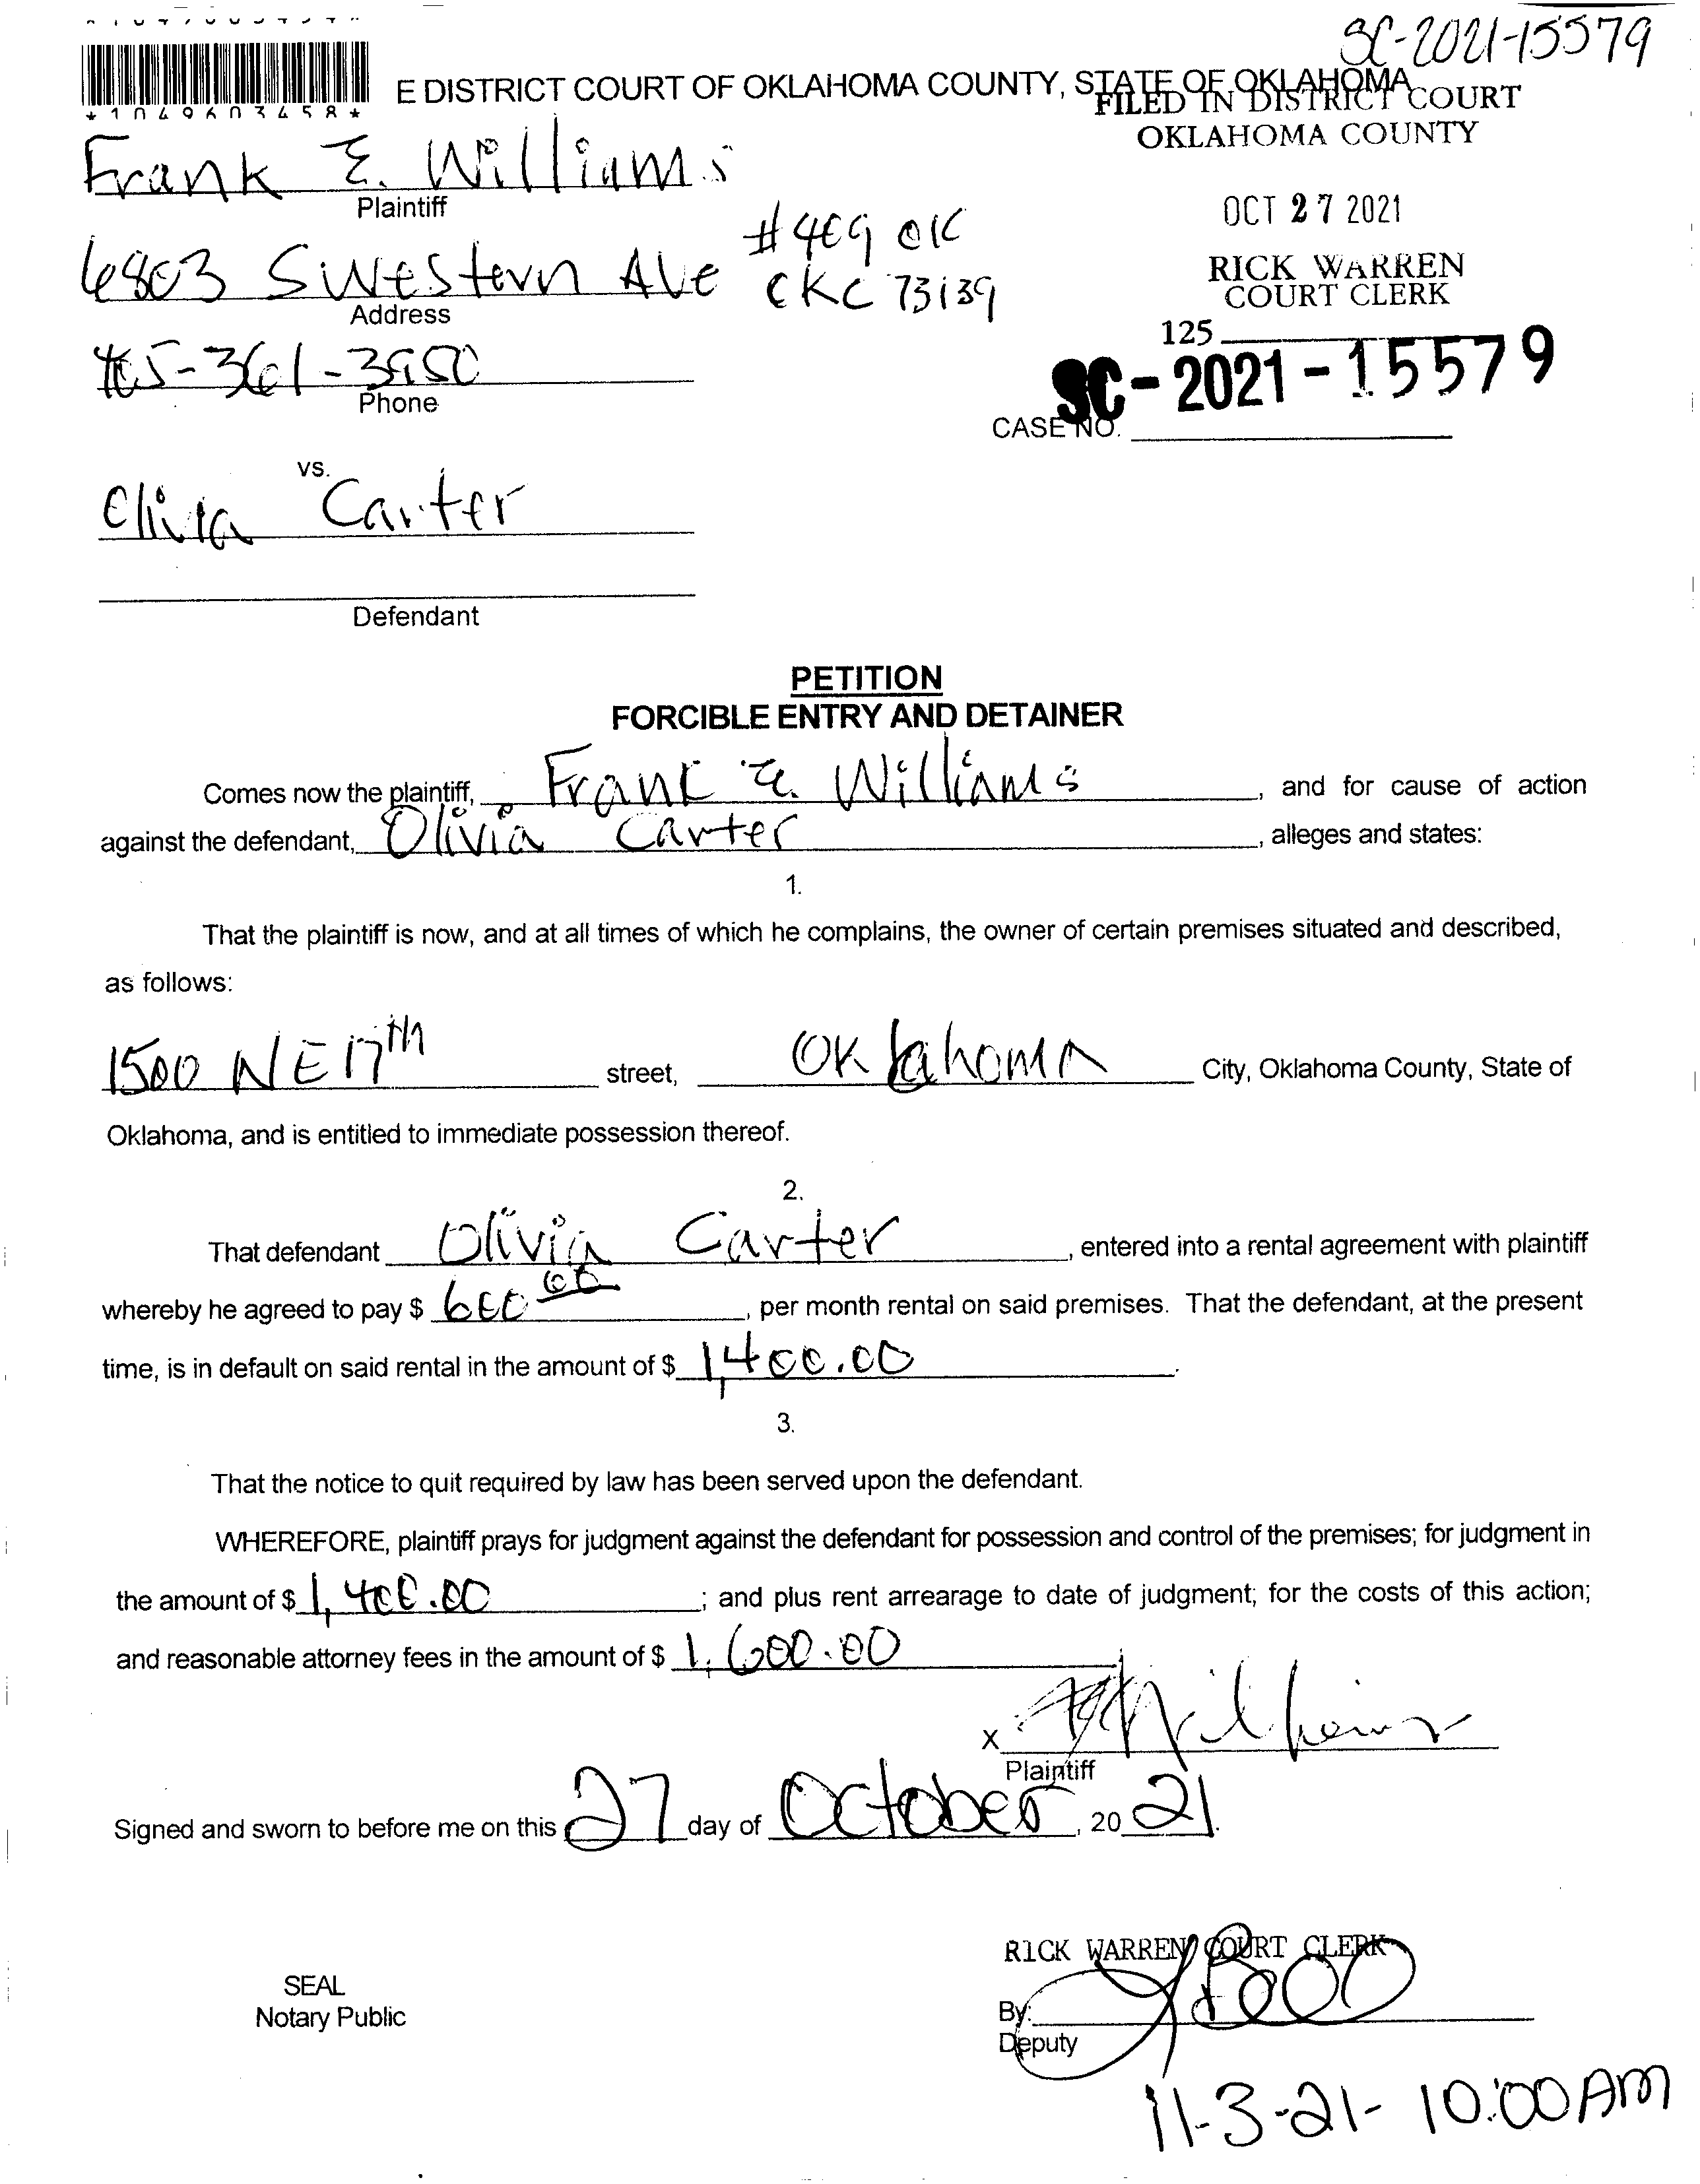 SC-2021-15579
*1049603458*
E DISTRICT COURT OF OKLAHOMA COUNTY, STATE OF OKLAHOMA
FILED IN DISTRICT COURT
OKLAHOMA COUNTY
Frank E. Williams
Plaintiff
OCT 27 2021
6803 S Western Ave #409 OK
OKC 73139
Address
RICK WARREN
COURT CLERK
125
405-361-3950
Phone
SC-2021-15579
CASE NO.
vs.
Olivia Carter
Defendant
PETITION
FORCIBLE ENTRY AND DETAINER
Comes now the plaintiff, Frank E. Williams, and for cause of action
against the defendant, Olivia Carter, alleges and states:
1.
That the plaintiff is now, and at all times of which he complains, the owner of certain premises situated and described,
as follows:
1500 NE 17th street, Oklahoma City, Oklahoma County, State of
Oklahoma, and is entitled to immediate possession thereof.
2.
That defendant Olivia Carter, entered into a rental agreement with plaintiff
whereby he agreed to pay $ 600 00, per month rental on said premises. That the defendant, at the present
time, is in default on said rental in the amount of $ 1,400.00.
3.
That the notice to quit required by law has been served upon the defendant.
WHEREFORE, plaintiff prays for judgment against the defendant for possession and control of the premises; for judgment in
the amount of $ 1,400.00; and plus rent arrearage to date of judgment; for the costs of this action;
and reasonable attorney fees in the amount of $ 1,600.00
X Williams
Plaintiff
Signed and sworn to before me on this 27 day of October, 20 21.
RICK WARREN COURT CLERK
SEAL
Notary Public
By:
Deputy
11-3-21- 10:00AM